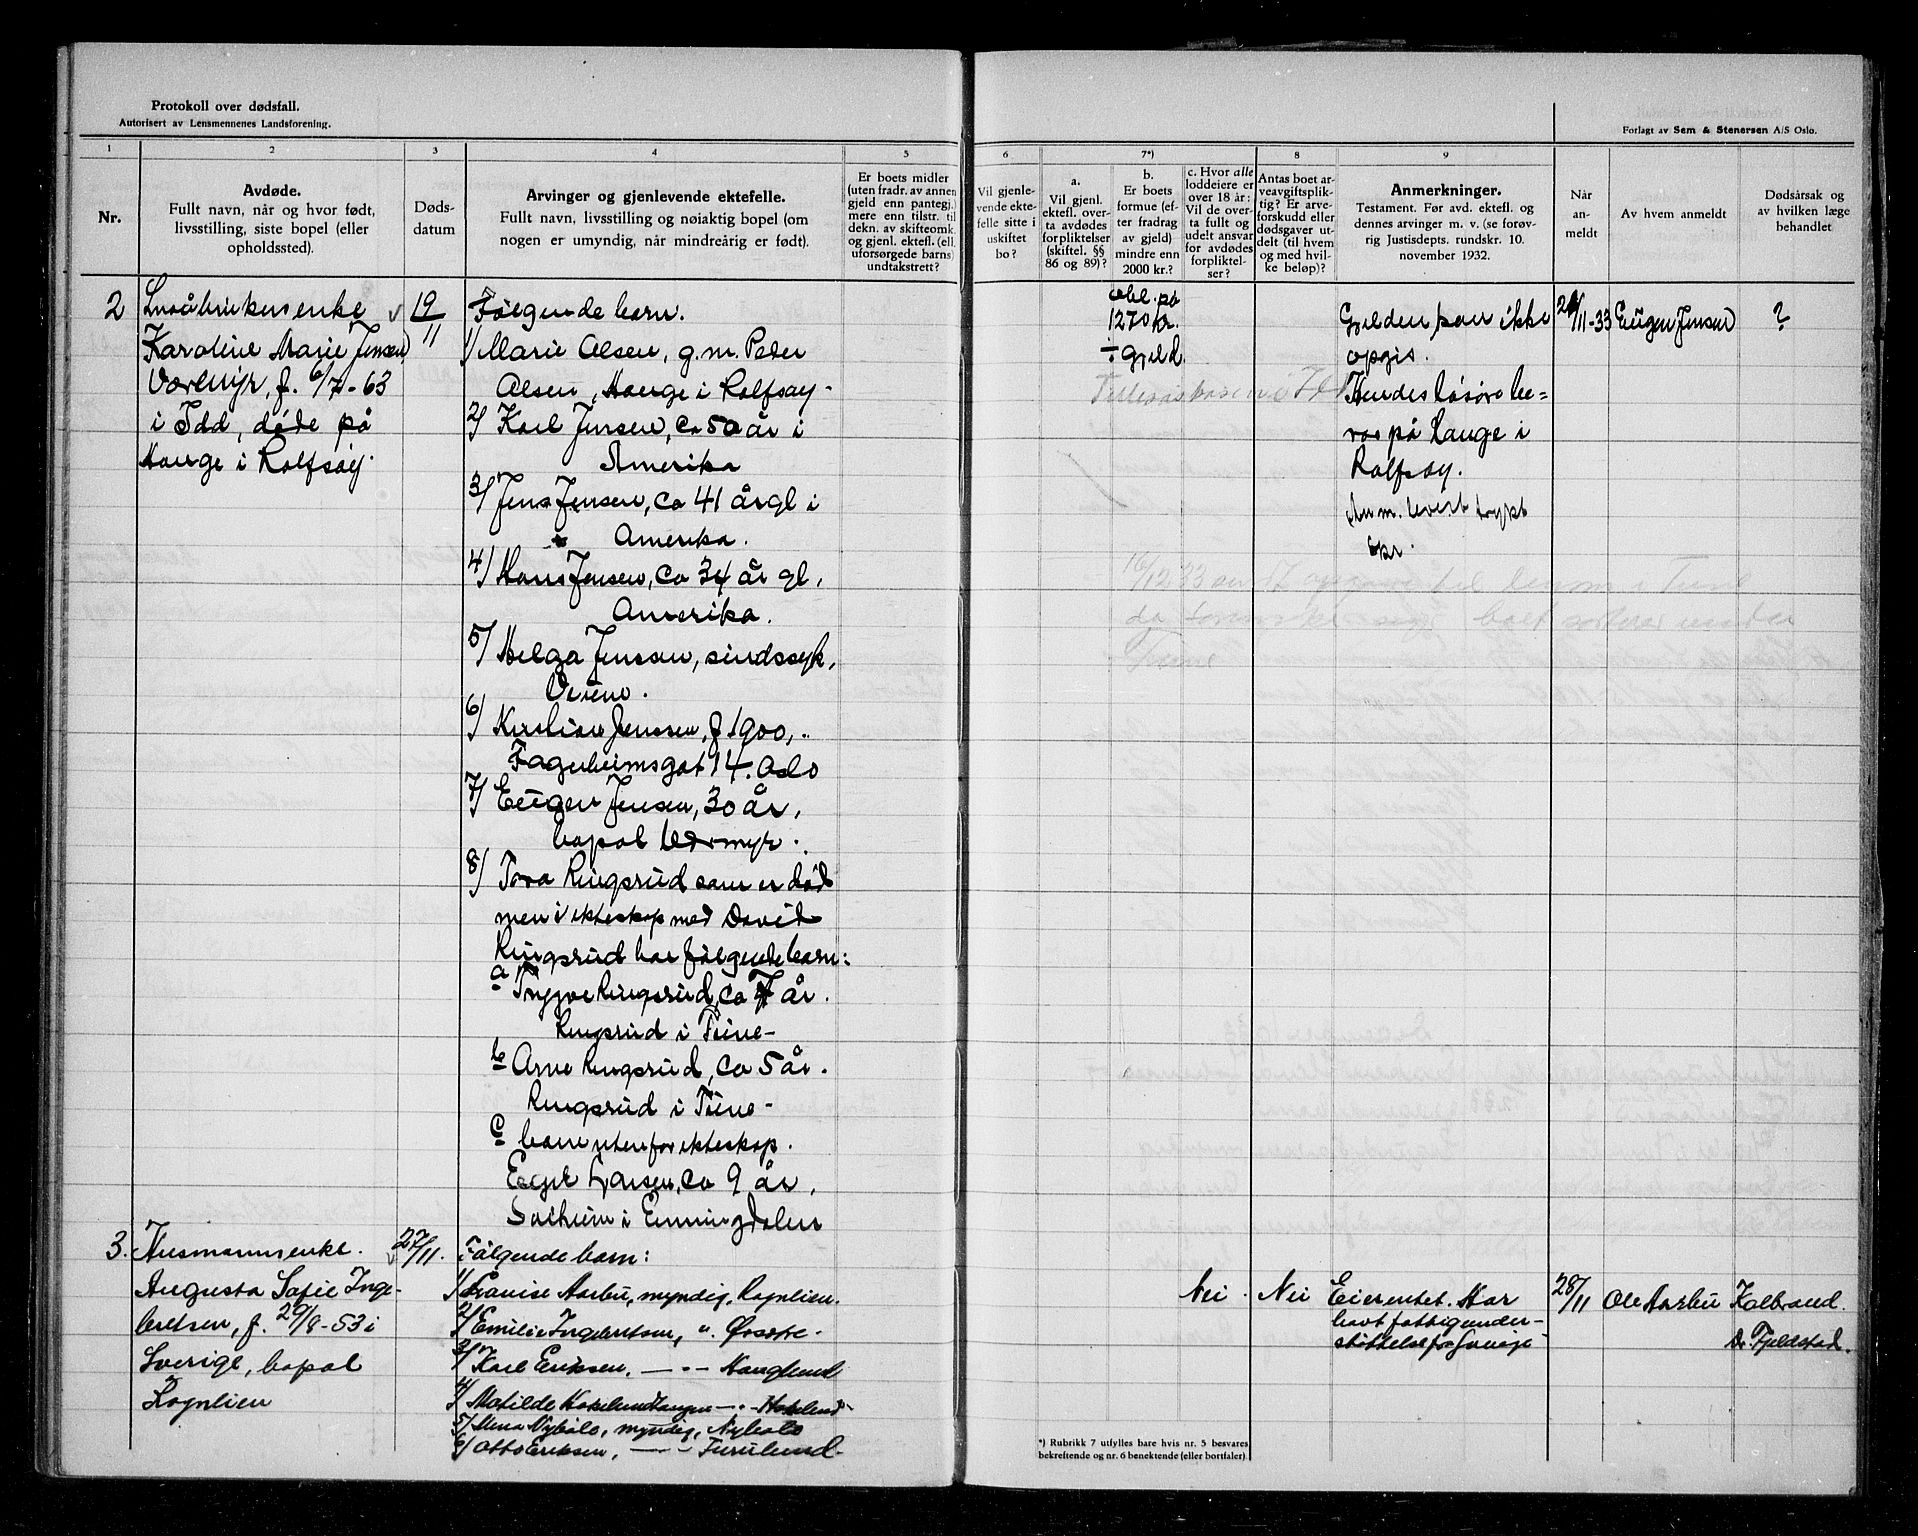 Protokoll over dødsfall.
Autorisert av Lensmennenes Landsforening.
Forlagt av Sem & Stenersen A/S Oslo.
1
2
3
4
5
6
7*)
8
9
Nr.
Avdøde.
Fullt navn, når og hvor født,
livsstilling, siste bopel (eller
opholdssted).
Døds-
datum
Arvinger og gjenlevende ektefelle.
Fullt navn, livsstilling og nøiaktig bopel (om
nogen er umyndig, når mindreårig er født).
Er boets midler
(uten fradr. av annen
gjeld enn pantegj.)
mere enn tilstr. til
dekn. av skifteomk.
og gjenl. ektef. (ell.
uforsørgede barns)
undtakstrett?
Vil gjenle-
vende ekte-
felle sitte i
uskiftet
bo?
a.
Vil gjenl.
ektefl. over-
ta avdødes
forpliktelser
(skiftel. §§
86 og 89)?
b.
Er boets
formue (ef-
ter fradrag
av gjeld)
mindre enn
2000 kr.?
c. Hvor alle
loddeiere er
over 18 år:
Vil de over-
ta fullt og
udelt ansvar
for avdødes
forpliktel-
ser?
Antas boet ar-
veavgiftsplik-
tig? Er arve-
forskudd eller
dødsgaver ut-
delt (til hvem
og med hvil-
ke beløp)?
Anmerkninger.
Testament. Før avd. ektefl. og
dennes arvinger m. v. (se forøv-
rig Justisdepts. rundskr. 10.
november 1932.
Når
an-
meldt
Av hvem anmeldt
Dødsårsak og
av hvilken læge
behandlet
2
Småbrukerenke
Karoline Marie Jensen
Vormyr, f. 6/7-63
i Idd, døde på
Hauge i Rolfsøy.
19/11
Følgende barn.
1/ Marie Olsen, g.m. Peder
Olsen, Hauge i Rolfsøy-
2/ Karl Jensen, ca 50 år i
Amerika
3/ Jens Jensen, ca 41 år gl i
Amerika.
4/ Hans Jensen, ca 34 år gl,
Amerika.
5/ Helga Jensen, sindssyk,
Veum.
6/ Kristian Jensen, f 1900,
Fagerheimsgat 14. Oslo
7/ Eugen Jensen, 30 år,
bopel Vormyr.
8/ Tora Ringsrud som er død
men i ekteskap med David
Ringsrud har følgende barn:
a Trygve Ringsrud, ca 7 år.
Ringsrud i Tune-
b Arne Ringsrud, ca 5 år.
Ringsrud i Tune-
c barn utenfor ekteskap.
Egil Larsen, ca 9 år,
Solheim i Enningdalen
obl. på
1270 kr.
÷ gjeld.
Gjelden kan ikke
opgis.
Hendes løsøre be-
ros på Hauge i
Rolfsøy.
24/11-33
Eugen Jensen
?
16/12 33
Tune
3.
Husmannsenke.
Augusta Sofie Inge-
bretsen, f. 29/8-53 i
Sverige, bopel
Rognlien
27/11.
Følgende barn:
1/ Lovise Aarbu, myndig, Rognlien.
2/ Emilie Ingebretsen, "
3/ Karl Eriksen, — " —
4/ Matilde
5/ myndig,
6/ Otto Eriksen, — " — Furulund.
Nei.
Nei
Eier intet. Har
havt fattigunder-
støttelse fra Sverige
28/11
Ole Aarbu
Kolbrand.
Dr. Fjeldstad.
*) Rubrikk 7 utfylles bare hvis nr. 5 besvares
bekreftende og nr. 6 benektende (eller bortfaler)